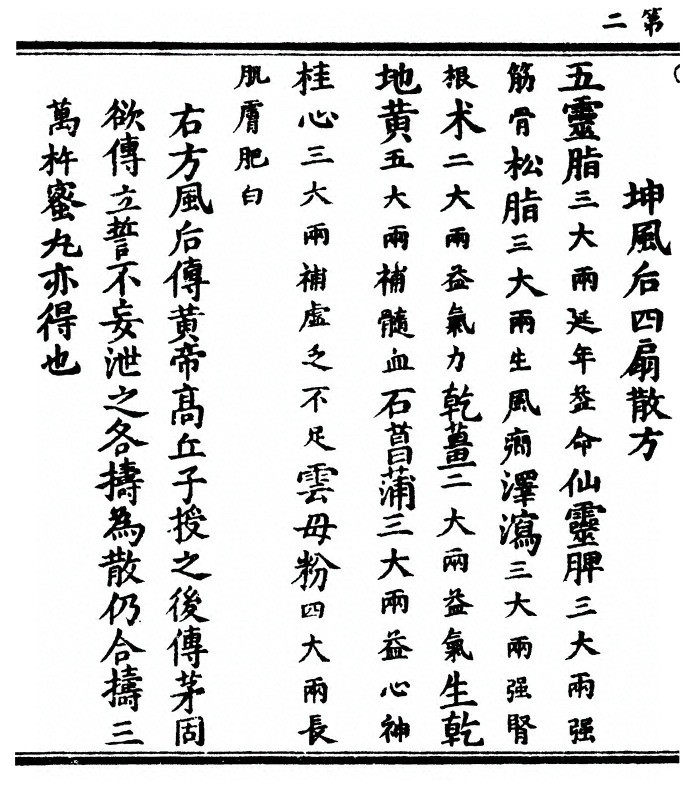 第二
坤風后四扇散方
五靈脂三大兩延年益命仙靈脾三大兩强
筋骨松脂三大兩生風癇澤瀉三大兩强腎
根术二大兩益氣力乾薑二大兩益氣生乾
地黄五大兩補髓血石菖蒲三大兩益心神
桂心三大兩補虛乏不足雲母粉四大兩長
肌膚肥白
右方風后傳黄帝高丘子授之後傳茅固
欲傳立誓不妄泄之各擣為散仍合擣三
萬杵蜜丸亦得也